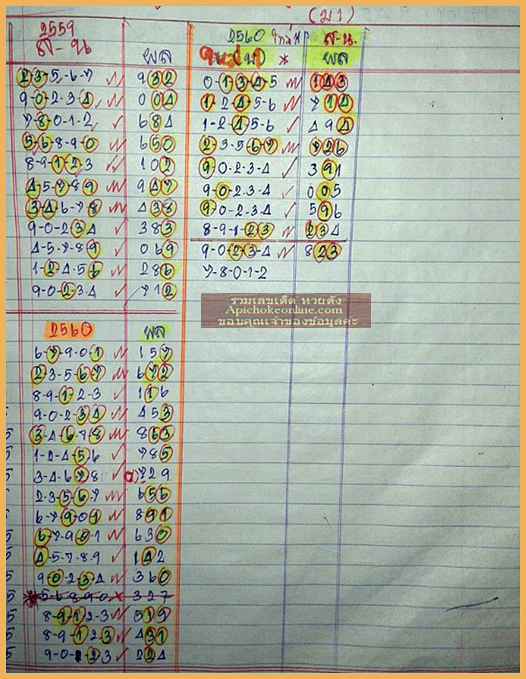 (ม1)
2559
ส-น ผล
2-3-5-6-7 932
9-0-2-3-4 004
7-8-0-1-2 684
5-6-8-9-0 650
8-9-1-2-3 102
4-5-7-8-9 947
3-4-6-7-8 438
9-0-2-3-4 383
4-5-7-8-9 069
1-2-4-5-6 286
9-0-2-3-4 712
2560 ผล
6-7-9-0-1 157
2-3-5-6-7 672
8-9-1-2-3 116
9-0-2-3-4 453
3-4-6-7-8 863
1-2-4-5-6 785
3-4-6-7-8 729
2-3-5-6-7 656
6-7-9-0-1 891
6-7-9-0-1 630
4-5-7-8-9 142
9-0-2-3-4 360
5-6-8-9-0 327
8-9-1-2-3 519
8-9-1-2-3 431
9-0-1-2-3 224
2560 ส-น
ผล
0-1-3-4-5 143
1-2-4-5-6 714
1-2-4-5-6 494
2-3-5-6-7 726
9-0-2-3-4 391
9-0-2-3-4 005
9-0-2-3-4 596
8-9-1-2-3 234
9-0-2-3-4 823
7-8-0-1-2
รวมเลขเด็ด หวยดัง
Apichokeonline.com
ขอบคุณเจ้าของข้อมูลค่ะ